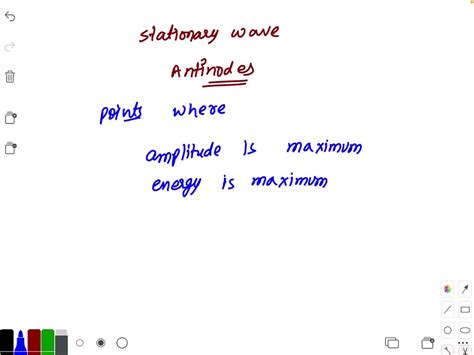 Stationary wave
Antinodes
points where
amplitude is maximum
energy is maximum